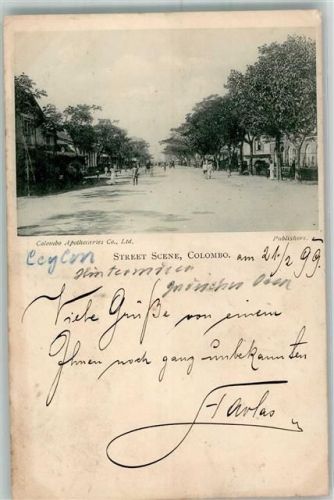 Colombo Apothecaries Co., Ltd. Publishers.
STREET SCENE, COLOMBO. am 21/2 99.
Ceylon
Indischer
Viele Grüße von einem
Ihnen noch ganz unbekannten